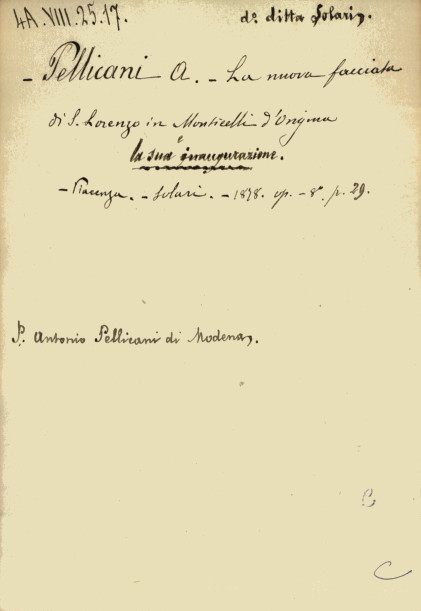 4A.VIII.25.17.
dº ditta Solari.
- Pellicani A. - La nuova facciata
di S. Lorenzo in Monticelli d'Ongina
e
la sua inaugurazione.
- Piacenza. - Solari. - 1878. op. - 8º p. 29.
P. Antonio Pellicani di Modena.
C
C